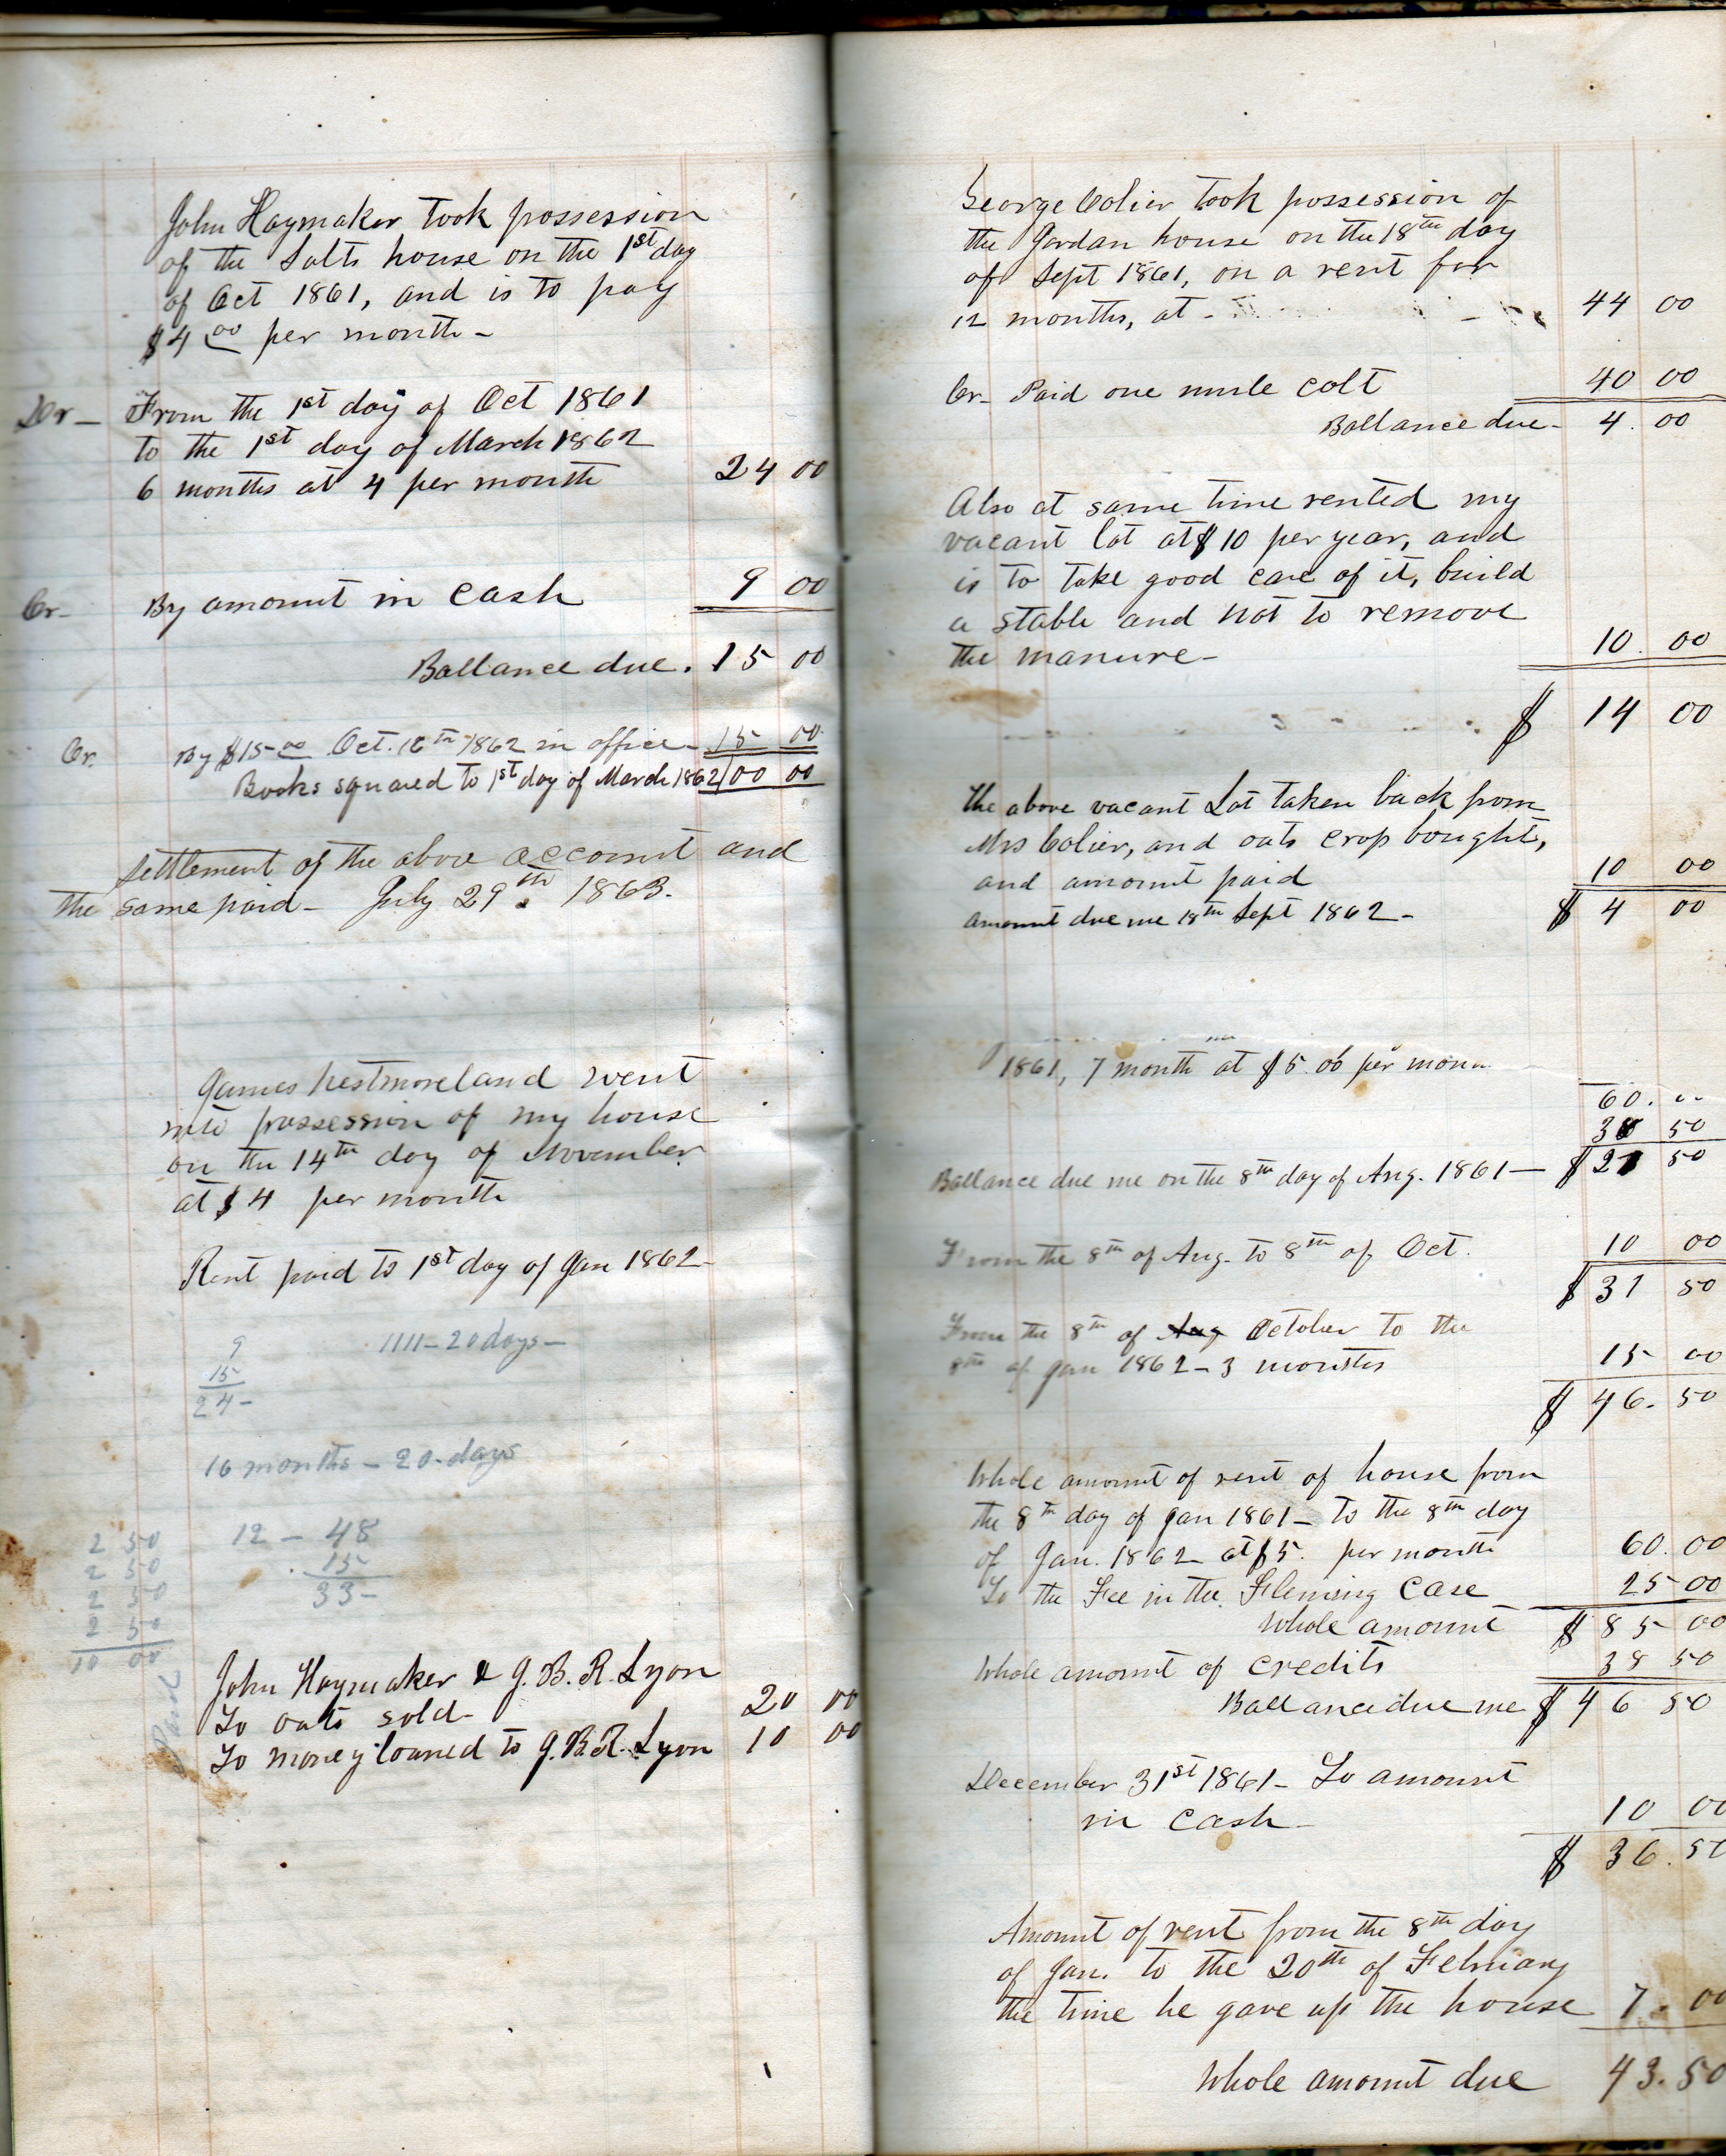 John Haymaker took possession
of the Salts house on the 1st day
of Oct 1861, and is to pay
$4 00 per month -
Dr - From the 1st day of Oct 1861
to the 1st day of March 1862
6 months at 4 per month 24 00
Cr - By amount in cash 9 00
Ballance due . 15 00
Cr. By $15 00 Oct. 16th 1862 in office - 15 00
Books squared to 1st day of March 1862 00 00
Settlement of the above account and
the same paid - July 29th 1863.
James Westmoreland went
into possession of my house
on the 14th day of November
at $4 per month
Rent paid to 1st day of Jan 1862 -
9 1111 - 20 days -
15
24 -
16 months - 20 days
12 - 48
15
33 -
2 50
2 50
2 50
2 50
10 00
Paid
John Haymaker & J. B. R. Lyon
To oats sold - 20 00
To money loaned to J. B. R. Lyon 10 00
George Colier took possession of
the Jordan house on the 18th day
of Sept 1861, on a rent for
12 months, at - 44 00
Cr - Paid one mule colt 40 00
Ballance due - 4.00
Also at same time rented my
vacant lot at $10 per year, and
is to take good care of it, build
a stable and not to remove
the manure - 10.00
$ 14 00
The above vacant Lot taken back from
Mrs Colier, and oats crop bought,
and amount paid 10 00
amount due me 18th Sept 1862 - $ 4 00
1861, 7 month at $5.00 per month
60.
38 50
Ballance due me on the 8th day of Aug. 1861 - $ 21 50
From the 8th of Aug. to 8th of Oct. 10 00
$ 31 50
From the 8th of Aug October to the
8th of Jan 1862 - 3 months 15 00
$ 46.50
Whole amount of rent of house from
the 8th day of Jan 1861 - to the 8th day
of Jan. 1862 at $5. per month 60.00
To the Fee in the Fleming Case 25 00
Whole amount $ 85 00
Whole amount of credits 38 50
Ballance due me $ 46 50
December 31st 1861 - To amount
in cash - 10 00
$ 36.50
Amount of rent from the 8th day
of Jan. to the 20th of February
the time he gave up the house 7.00
Whole amount due 43.50